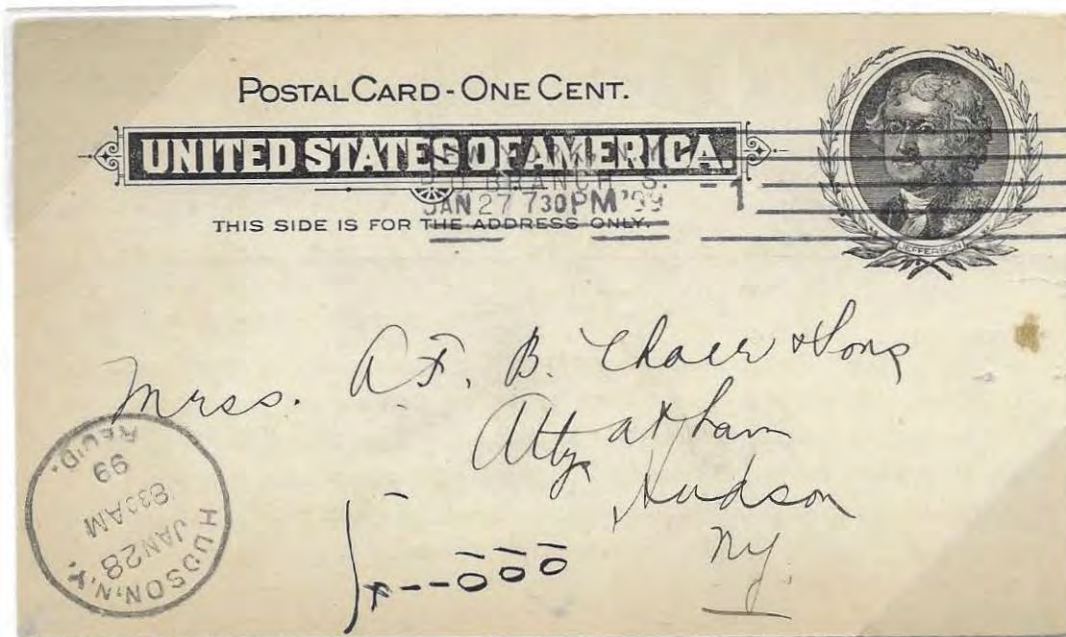 POSTAL CARD - ONE CENT.
UNITED STATES OF AMERICA.
BRANCH S.
JAN 27 730PM '99
1
THIS SIDE IS FOR THE ADDRESS ONLY.
JEFFERSON
Mrss. A. F. B. & Sons
Attys at
Hudson
NY.
HUDSON, N.Y.
JAN 28
830AM
99
REC'D.